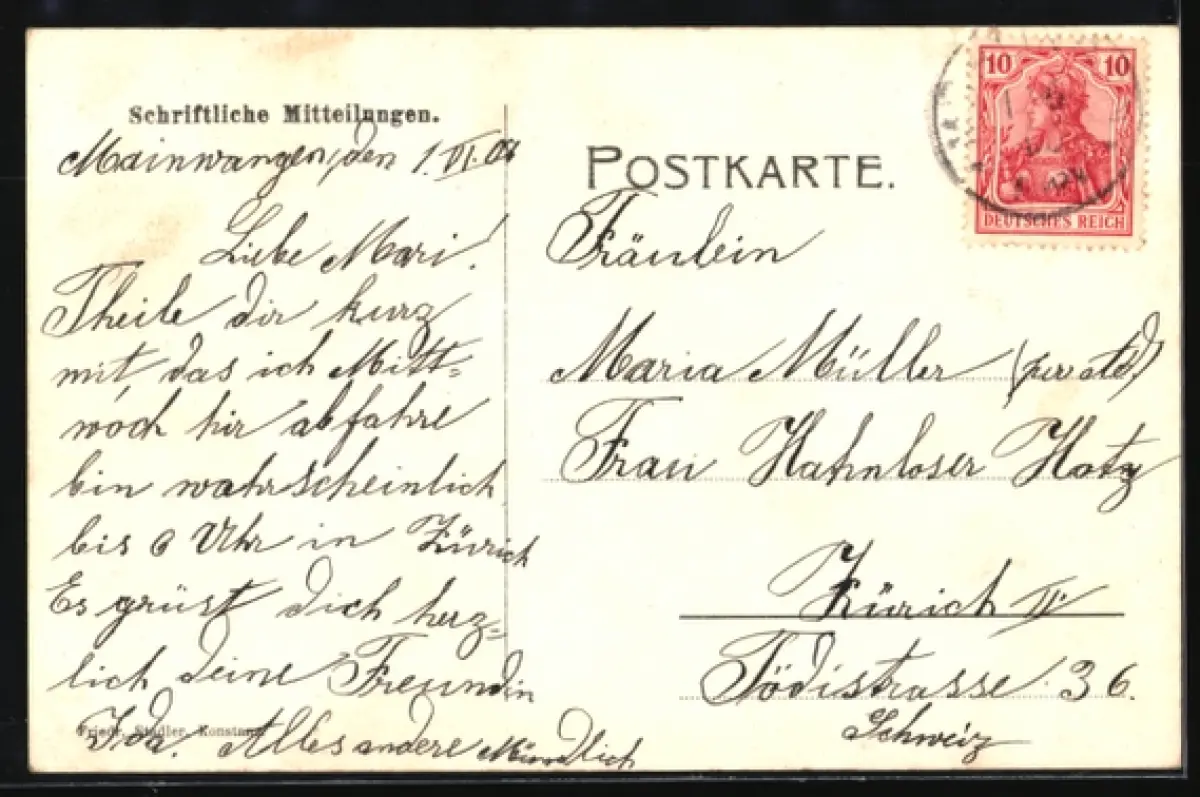 Schriftliche Mitteilungen.
Mainwangen, den 1. VI. 08
Liebe Mari!
Theile dir kurz
mit das ich Mitt-
woch hir abfahre
bin wahrscheinlich
bis 6 Uhr in Zürich
Es grüst dich herz-
lich deine Freundin
Ida. Alles andere Mündlich
Friedr. Stadler, Konstanz
POSTKARTE.
10 10
DEUTSCHES REICH
Fräulein
Maria Müller
Frau Hahnloser Hotz
Zürich II
Tödistrasse 36.
Schweiz